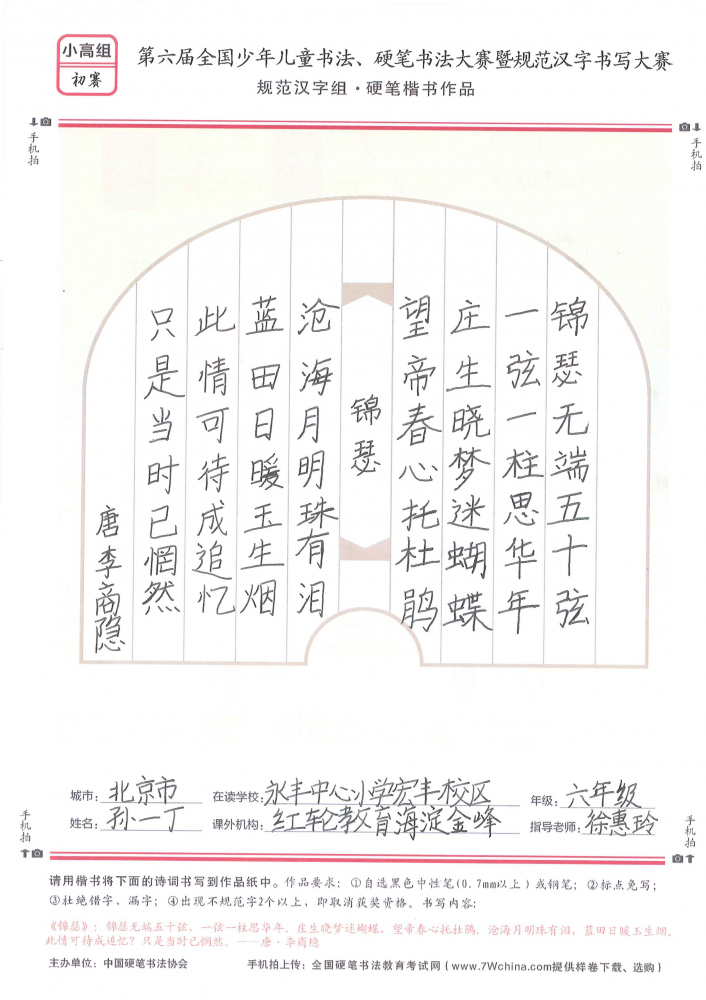 小高组
初赛
第六届全国少年儿童书法、硬笔书法大赛暨规范汉字书写大赛
规范汉字组·硬笔楷书作品
手机拍
手机拍
锦瑟无端五十弦
一弦一柱思华年
庄生晓梦迷蝴蝶
望帝春心托杜鹃
锦瑟
沧海月明珠有泪
蓝田日暖玉生烟
此情可待成追忆
只是当时已惘然
唐李商隐
城市：北京市 在读学校：永丰中心小学宏丰校区 年级：六年级
姓名：孙一丁 课外机构：红轮教育海淀金峰 指导老师：徐惠玲
手机拍
手机拍
请用楷书将下面的诗词书写到作品纸中。作品要求：①自选黑色中性笔(0.7mm以上)或钢笔；②标点免写；
③杜绝错字、漏字；④出现不规范字2个以上，即取消获奖资格。书写内容：
《锦瑟》：锦瑟无端五十弦，一弦一柱思华年。庄生晓梦迷蝴蝶，望帝春心托杜鹃。沧海月明珠有泪，蓝田日暖玉生烟。
此情可待成追忆？只是当时已惘然。——唐·李商隐
主办单位：中国硬笔书法协会 手机拍上传：全国硬笔书法教育考试网（www.7Wchina.com提供样卷下载、选购）